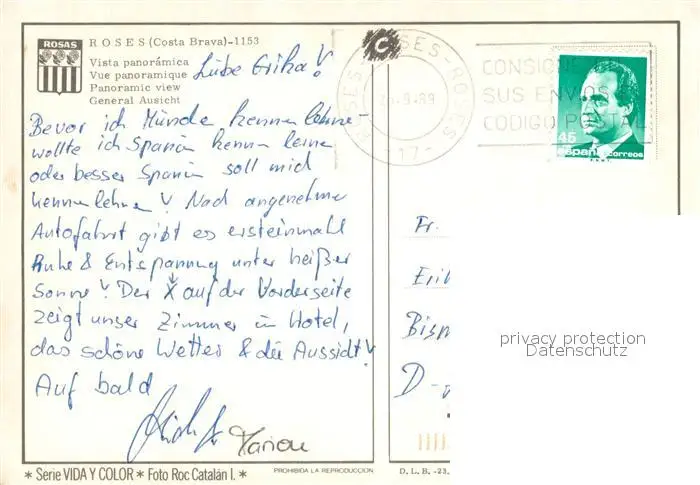 ROSAS
ROSES (Costa Brava)-1153
Vista panorámica
Vue panoramique
Panoramic view
General Ausicht
Liebe Erika!
Bevor ich Münde kennenlehne-
wollte ich Spanien kennen lerne
oder besser Spanien soll mich
kennenlehnen! Nach angenehme
Autofahrt gibt es ersteinmahl
Ruhe & Entspannung unter heißer
Sonne! Der X auf der Vorderseite
zeigt unser Zimmer im Hotel,
das schöne Wetter & die Aussicht!
Auf bald
* Serie VIDA Y COLOR * Foto Roc Catalán I. *
PROHIBIDA LA REPRODUCCION
ROSES-ROSES
-9-89
-17-
CONSIGNE
SUS ENVIOS
CODIGO POSTAL
45
españa correos
Fr.
Eri
Bism
D-
D. L. B. -23.
privacy protection
Datenschutz